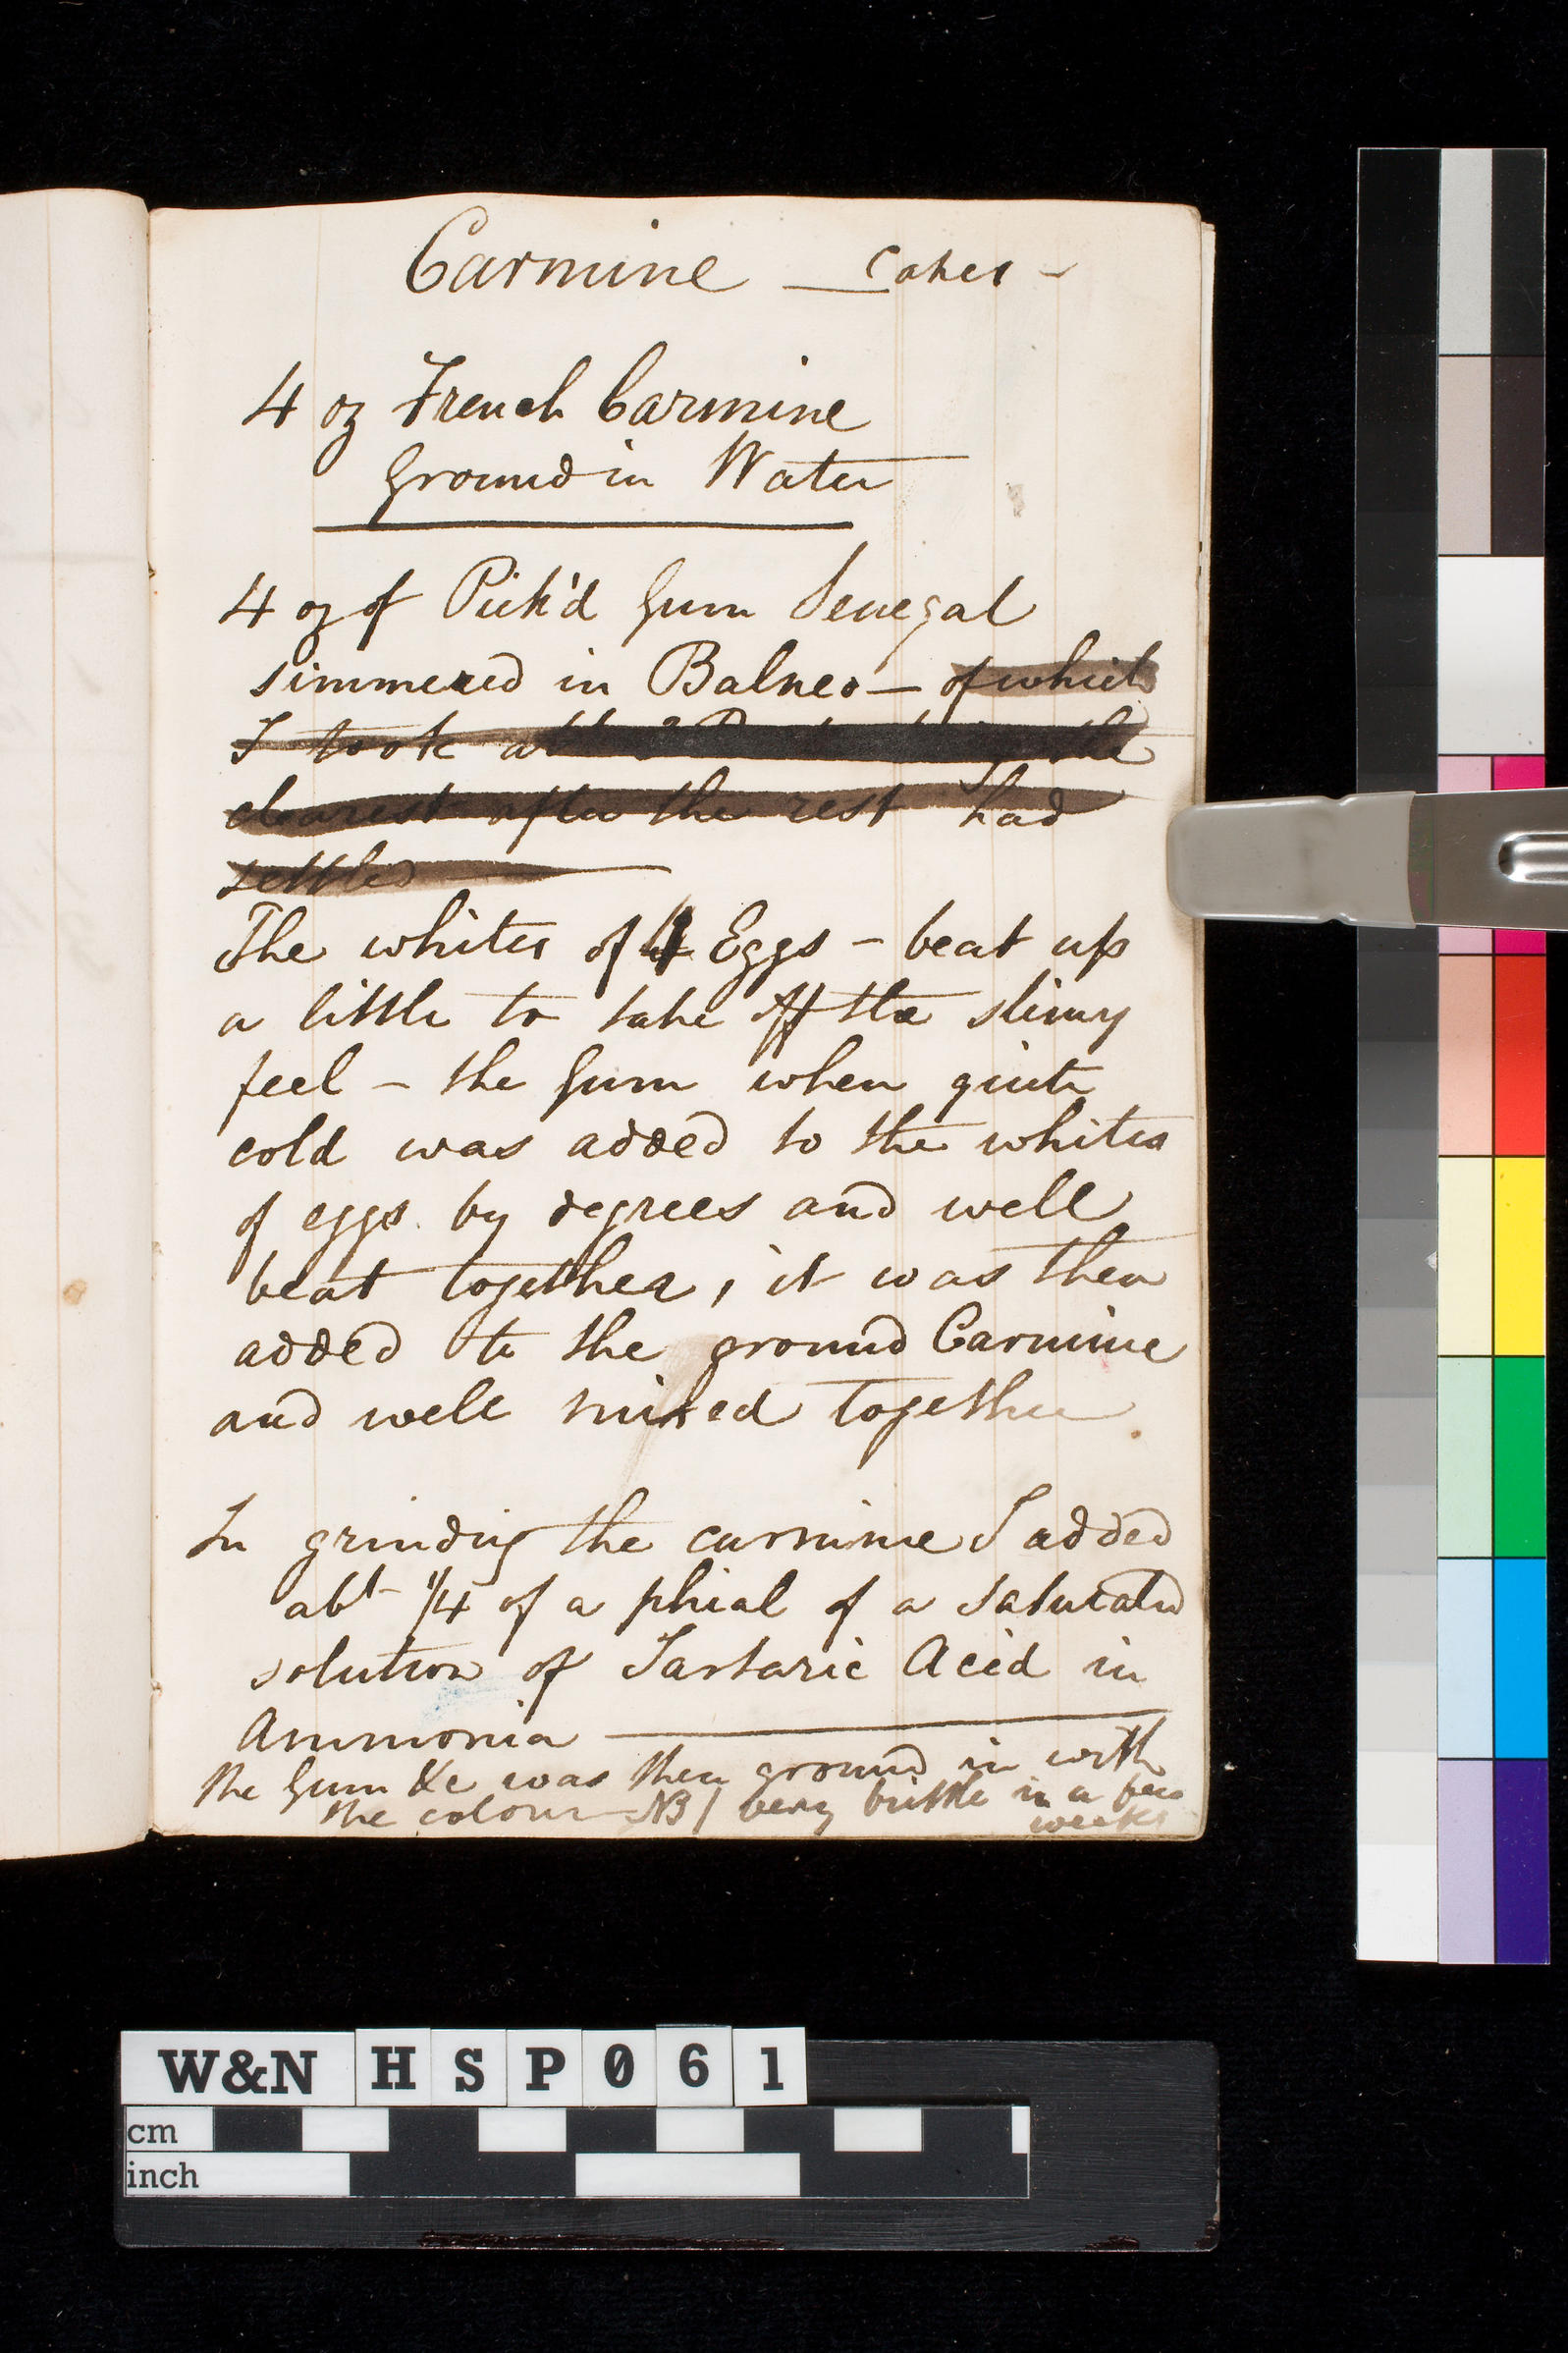 Carmine — Cakes -
4 oz French Carmine
Ground in Water
4 oz of Pick'd Gum Senegal
simmered in Balneo — of which
I took abt
clearest after the rest had
settled
The whites of 4 Eggs - beat up
a little to take off the slimy
feel - the Gum when quite
cold was added to the whites
of eggs by degrees and well
beat together, it was then
added to the ground Carmine
and well mixed together
In grinding the carmine I added
abt 1/4 of a phial of a saturated
solution of Tartaric Acid in
Ammonia —
the Gum &c was then ground in with
the colour - NB / very brittle in a few
weeks
W&N HSP061
cm
inch